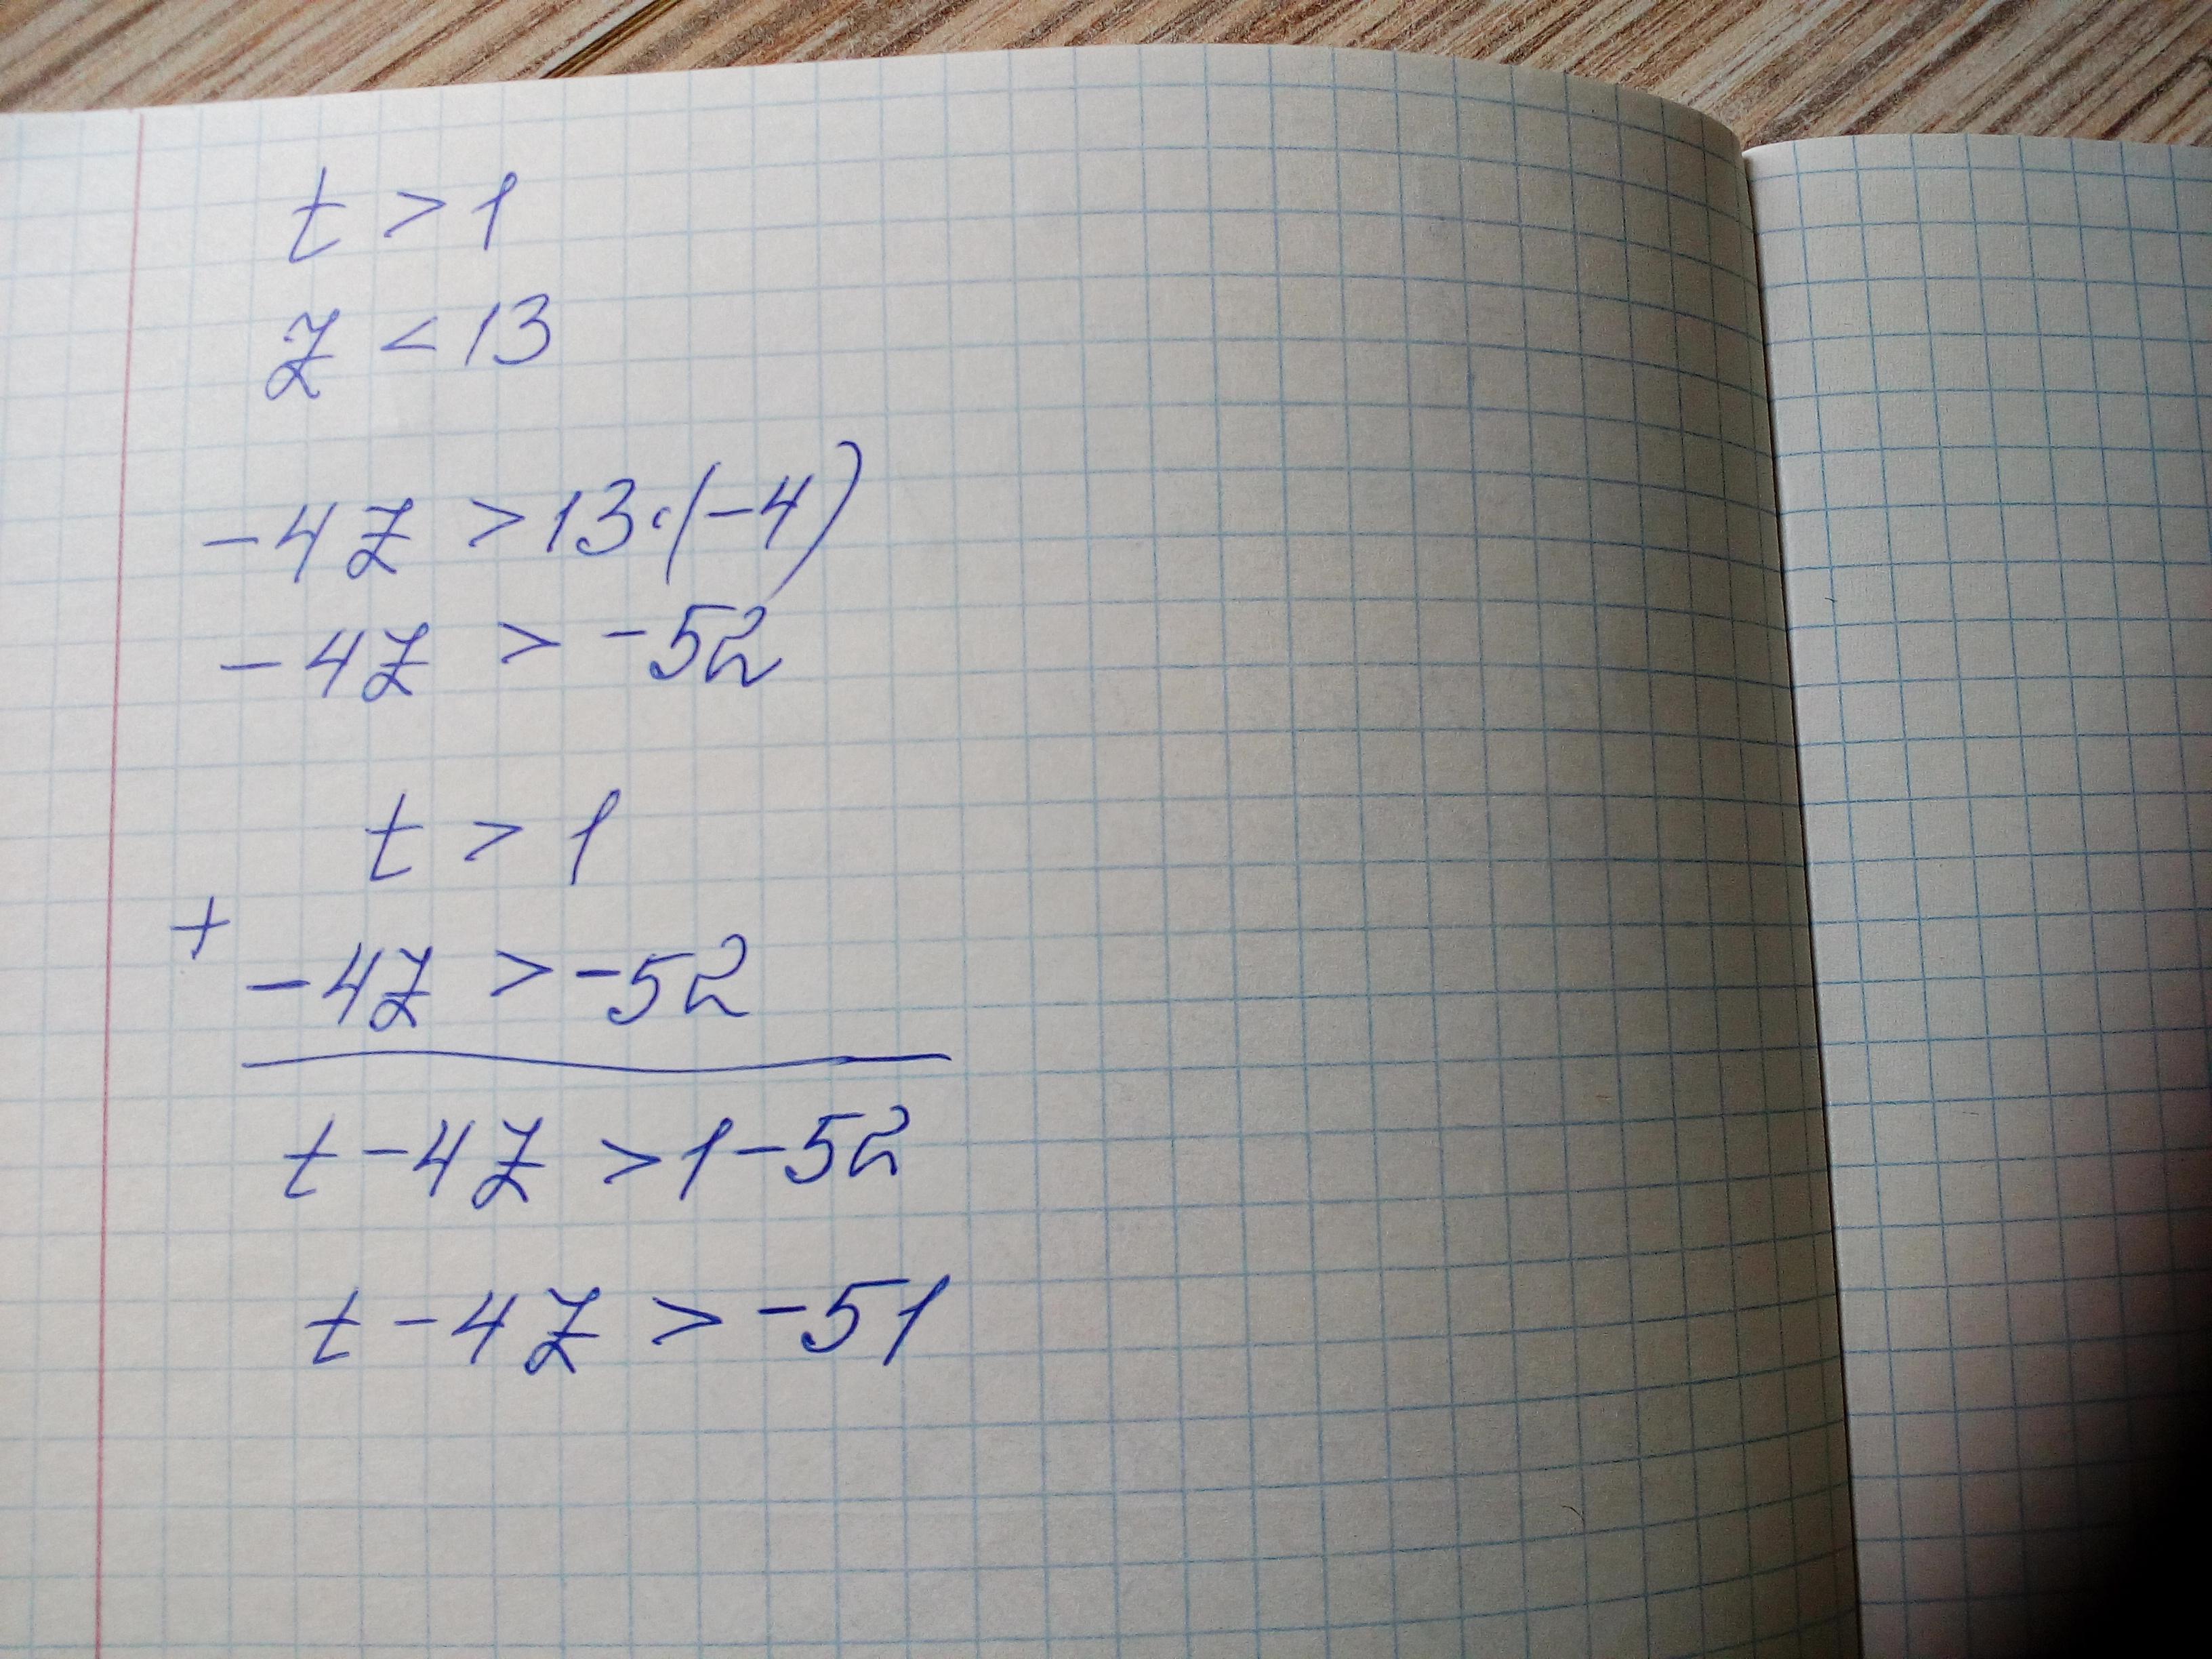 t > 1
z < 13
-4z > 13·(-4)
-4z > -52
t > 1
+
-4z > -52
t - 4z > 1 - 52
t - 4z > -51